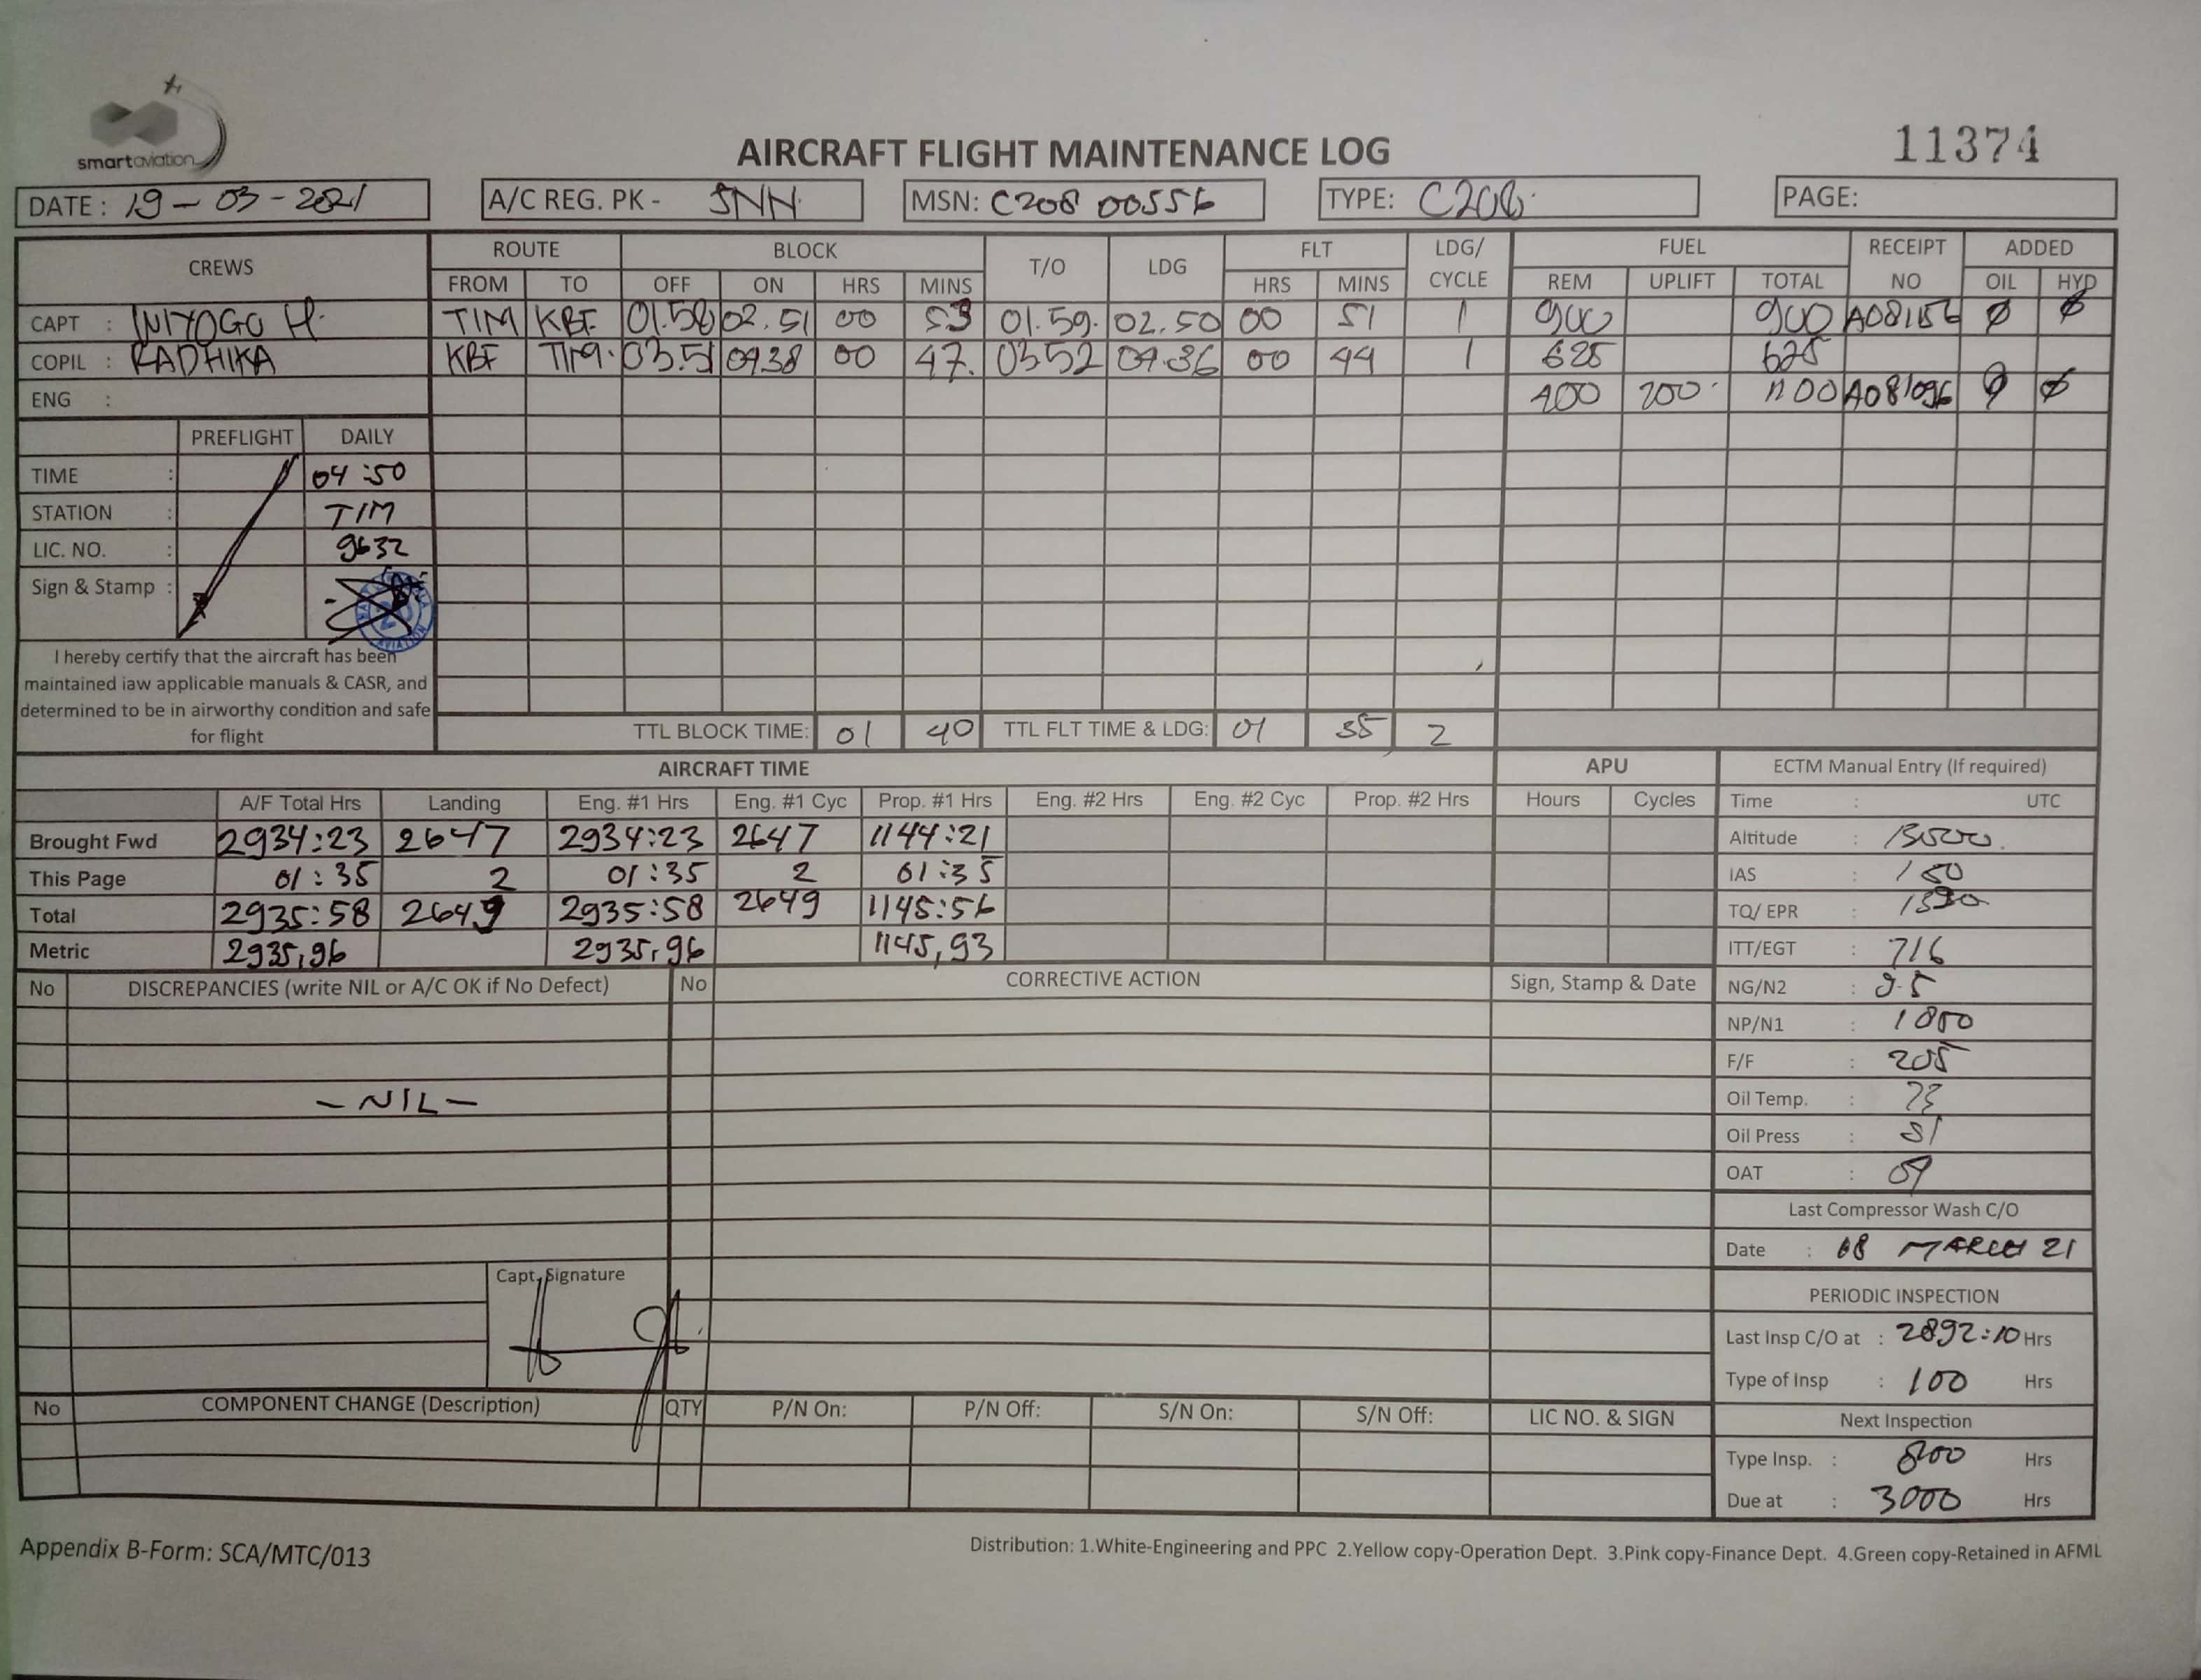 smartaviation
AIRCRAFT FLIGHT MAINTENANCE LOG
11374
DATE : 19 - 03 - 2021
A/C REG. PK - SNN
MSN: C208 00556
TYPE: C208
PAGE:
CREWS ROUTE BLOCK T/O LDG FLT LDG/ CYCLE FUEL RECEIPT NO ADDED
FROM TO OFF ON HRS MINS HRS MINS REM UPLIFT TOTAL OIL HYD
CAPT : H. TIM KBF 01.58 02.51 00 53 01.59. 02.50 00 51 1 900 900 A08156 Ø Ø
COPIL : RADHIKA KBF TIM. 03.51 04.38 00 47. 03 52 04.36 00 44 1 625 625
ENG : 200 A081096 Ø Ø
PREFLIGHT DAILY
TIME : 04:50
STATION : TIM
LIC. NO. : 9632
Sign & Stamp :
I hereby certify that the aircraft has been
maintained iaw applicable manuals & CASR, and
determined to be in airworthy condition and safe
for flight
TTL BLOCK TIME: 01 40 TTL FLT TIME & LDG: 01 35 2
AIRCRAFT TIME APU
A/F Total Hrs Landing Eng. #1 Hrs Eng. #1 Cyc Prop. #1 Hrs Eng. #2 Hrs Eng. #2 Cyc Prop. #2 Hrs Hours Cycles
Brought Fwd 2934:23 2647 2934:23 2647 1144:21
This Page 01:35 2 01:35 2 01:35
Total 2935:58 2649 2935:58 2649 1145:56
Metric 2935,96 2935,96 1145,93
ECTM Manual Entry (If required)
Time : UTC
Altitude :
IAS : 150
TQ/ EPR :
ITT/EGT : 716
NG/N2 :
NP/N1 : 1800
F/F : 205
Oil Temp. : 73
Oil Press :
OAT : 09
Last Compressor Wash C/O
Date : 08 MARCH 21
PERIODIC INSPECTION
Last Insp C/O at : 2892:10 Hrs
Type of Insp : 100 Hrs
Next Inspection
Type Insp. : 800 Hrs
Due at : 3000 Hrs
No DISCREPANCIES (write NIL or A/C OK if No Defect) No CORRECTIVE ACTION Sign, Stamp & Date
- NIL -
Capt. Signature
No COMPONENT CHANGE (Description) QTY P/N On: P/N Off: S/N On: S/N Off: LIC NO. & SIGN
Appendix B-Form: SCA/MTC/013
Distribution: 1.White-Engineering and PPC 2.Yellow copy-Operation Dept. 3.Pink copy-Finance Dept. 4.Green copy-Retained in AFML